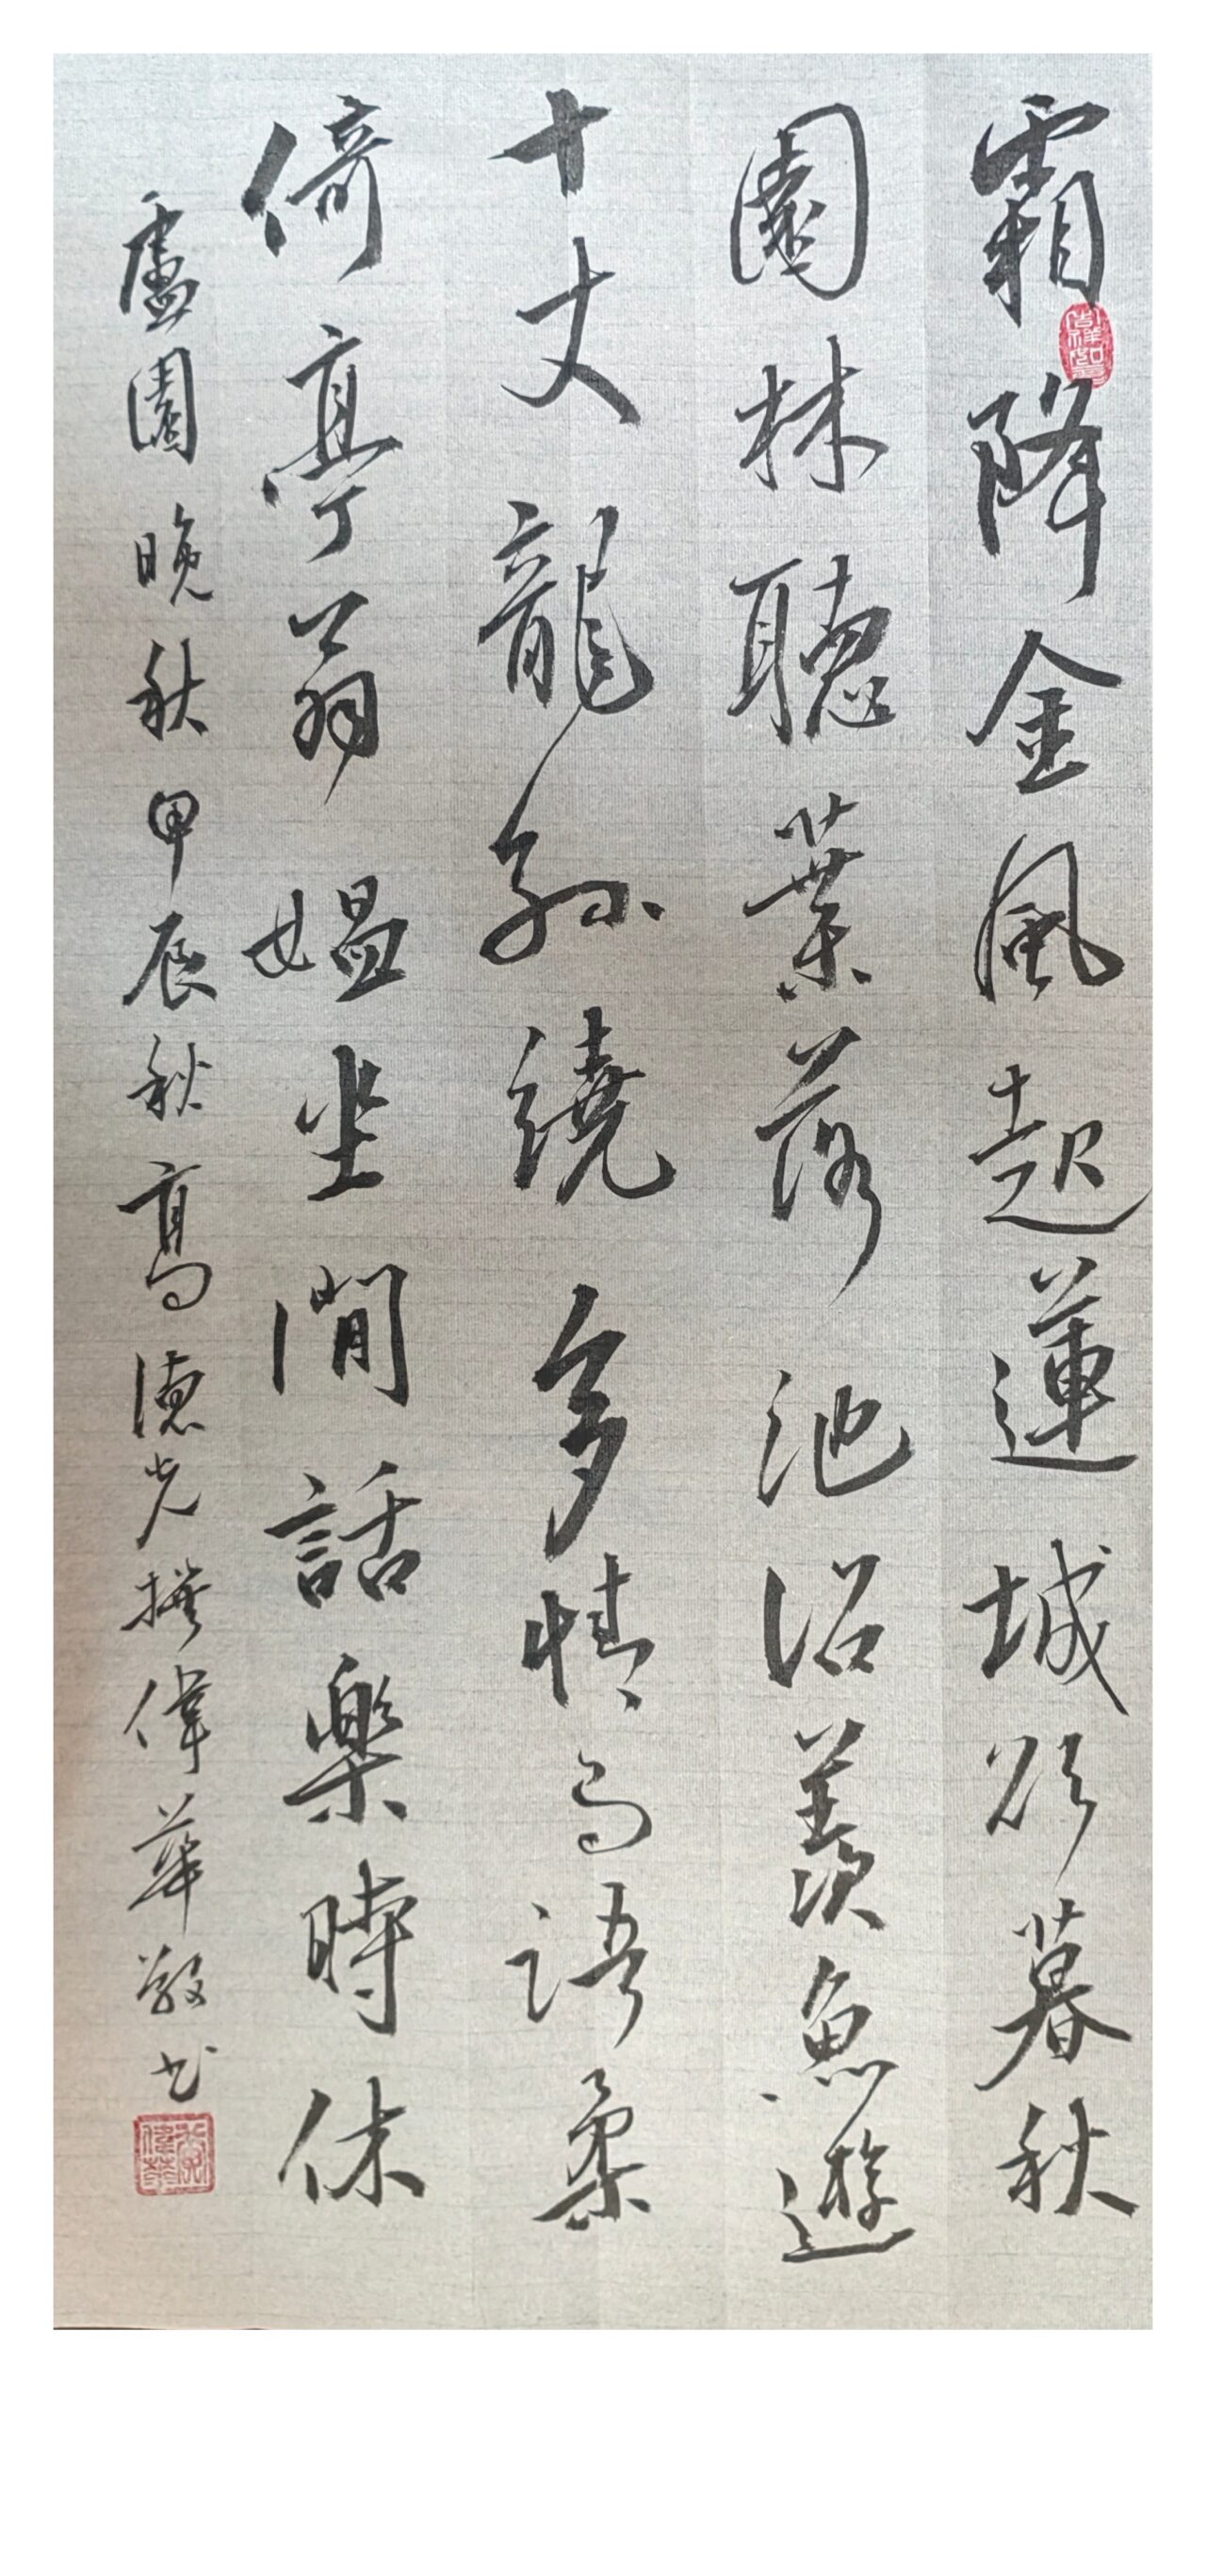 霜降金風起蓮城欲暮秋
吉祥如意
園林聽葉落池沼羨魚遊
十丈龍孫繞多情鳥語柔
倚亭翁媼坐閒話樂時休
盧園晚秋甲辰秋高德光撰偉華敬书